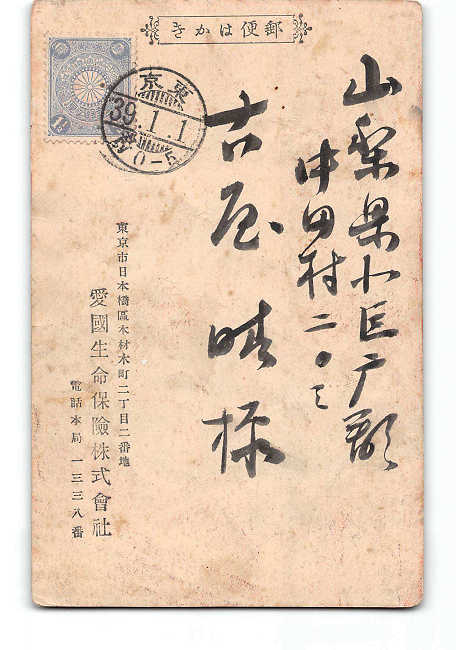 郵便はかき
山梨県北巨戸郡
中田村二〇三
古屋 晴様
東京
39.1.1
0-5
東京市日本橋區本材木町二丁目二番地
愛國生命保險株式會社
電話本局 一三三八番